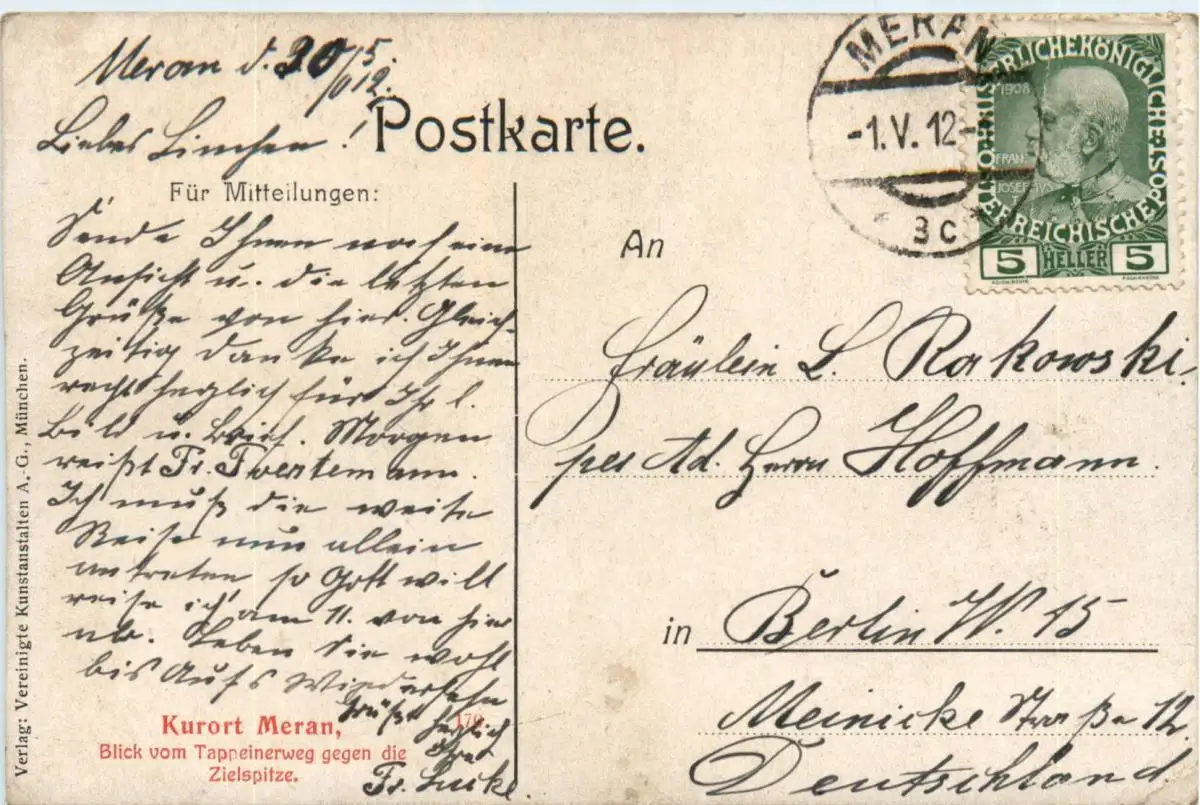 Meran d. 30/5.
/612.
Liebes Linchen!
Postkarte.
Für Mitteilungen:
Sende Ihnen noch eine
Ansicht u. die letzten
Grüße von hier. Gleich-
zeitig danke ich Ihnen
recht herzlich für Ihr l.
Bild u. Brief. Morgen
reißt Fr. Twestemann.
Ich muß die weite
Reise nun allein
antreten so Gott will
reise ich am 11. von hier
ab. Leben Sie wohl
bis Aufs Wiedersehn
Grüßt herzlich
Ihre
Fr. Lucke.
Kurort Meran,
Blick vom Tappeinerweg gegen die
Zielspitze.
Verlag: Vereinigte Kunstanstalten A.-G., München.
MERAN
-1.V.12-
3c
1908
FRANZ
JOSEPHVS
KAISERLICHEKÖNIGLICHE
ÖSTERREICHISCHEPOST
5 HELLER 5
An
Fräulein L. Rakowski.
per Ad. Herrn Hoffmann.
in Berlin W. 15
Meinicke Straße 12.
Deutschland.